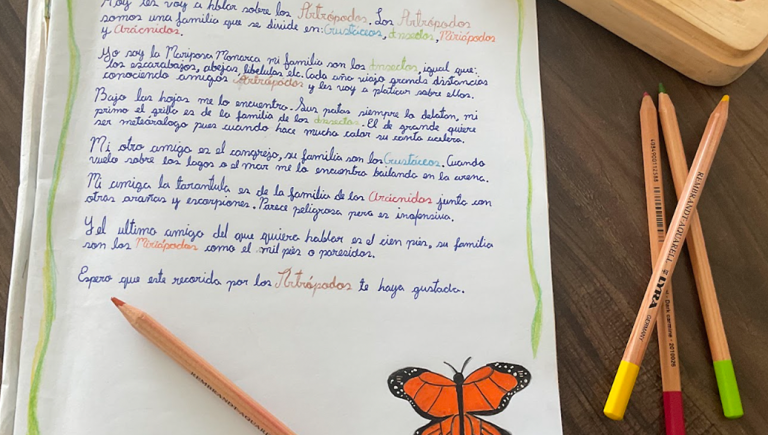 Hoy les voy a hablar sobre los Artrópodos. Los Artrópodos
somos una familia que se divide en: Crustáceos, insectos, Miriápodos
y Arácnidos.
Yo soy la Mariposa Monarca mi familia son los insectos, igual que:
los escarabajos, abejas, libelulas, etc. Cada año viajo grandes distancias
conociendo amigos Artrópodos y les voy a platicar sobre ellos.
Bajo las hojas me lo encuentro. Sus patas siempre lo delatan, mi
primo el grillo es de la familia de los insectos. El de grande quiere
ser meteórologo pues cuando hace mucho calor su canto acelera.
Mi otro amigo es el cangrejo, su familia son los Crustáceos. Cuando
vuelo sobre los lagos o el mar me lo encuentro bailando en la arena.
Mi amiga la tarantula es de la familia de los Arácnidos junto con
otras arañas y escorpiones. Parece peligrosa pero es inofensiva.
Y el ultimo amigo del que quiero hablar es el cien piés, su familia
son los Miriápodos como el mil piés o parecidos.
Espero que este recorrido por los Artrópodos te haya gustado.
REMBRANDT AQUARELL
REMBRANDT AQUARELL LYRA GERMANY
Dark carmine